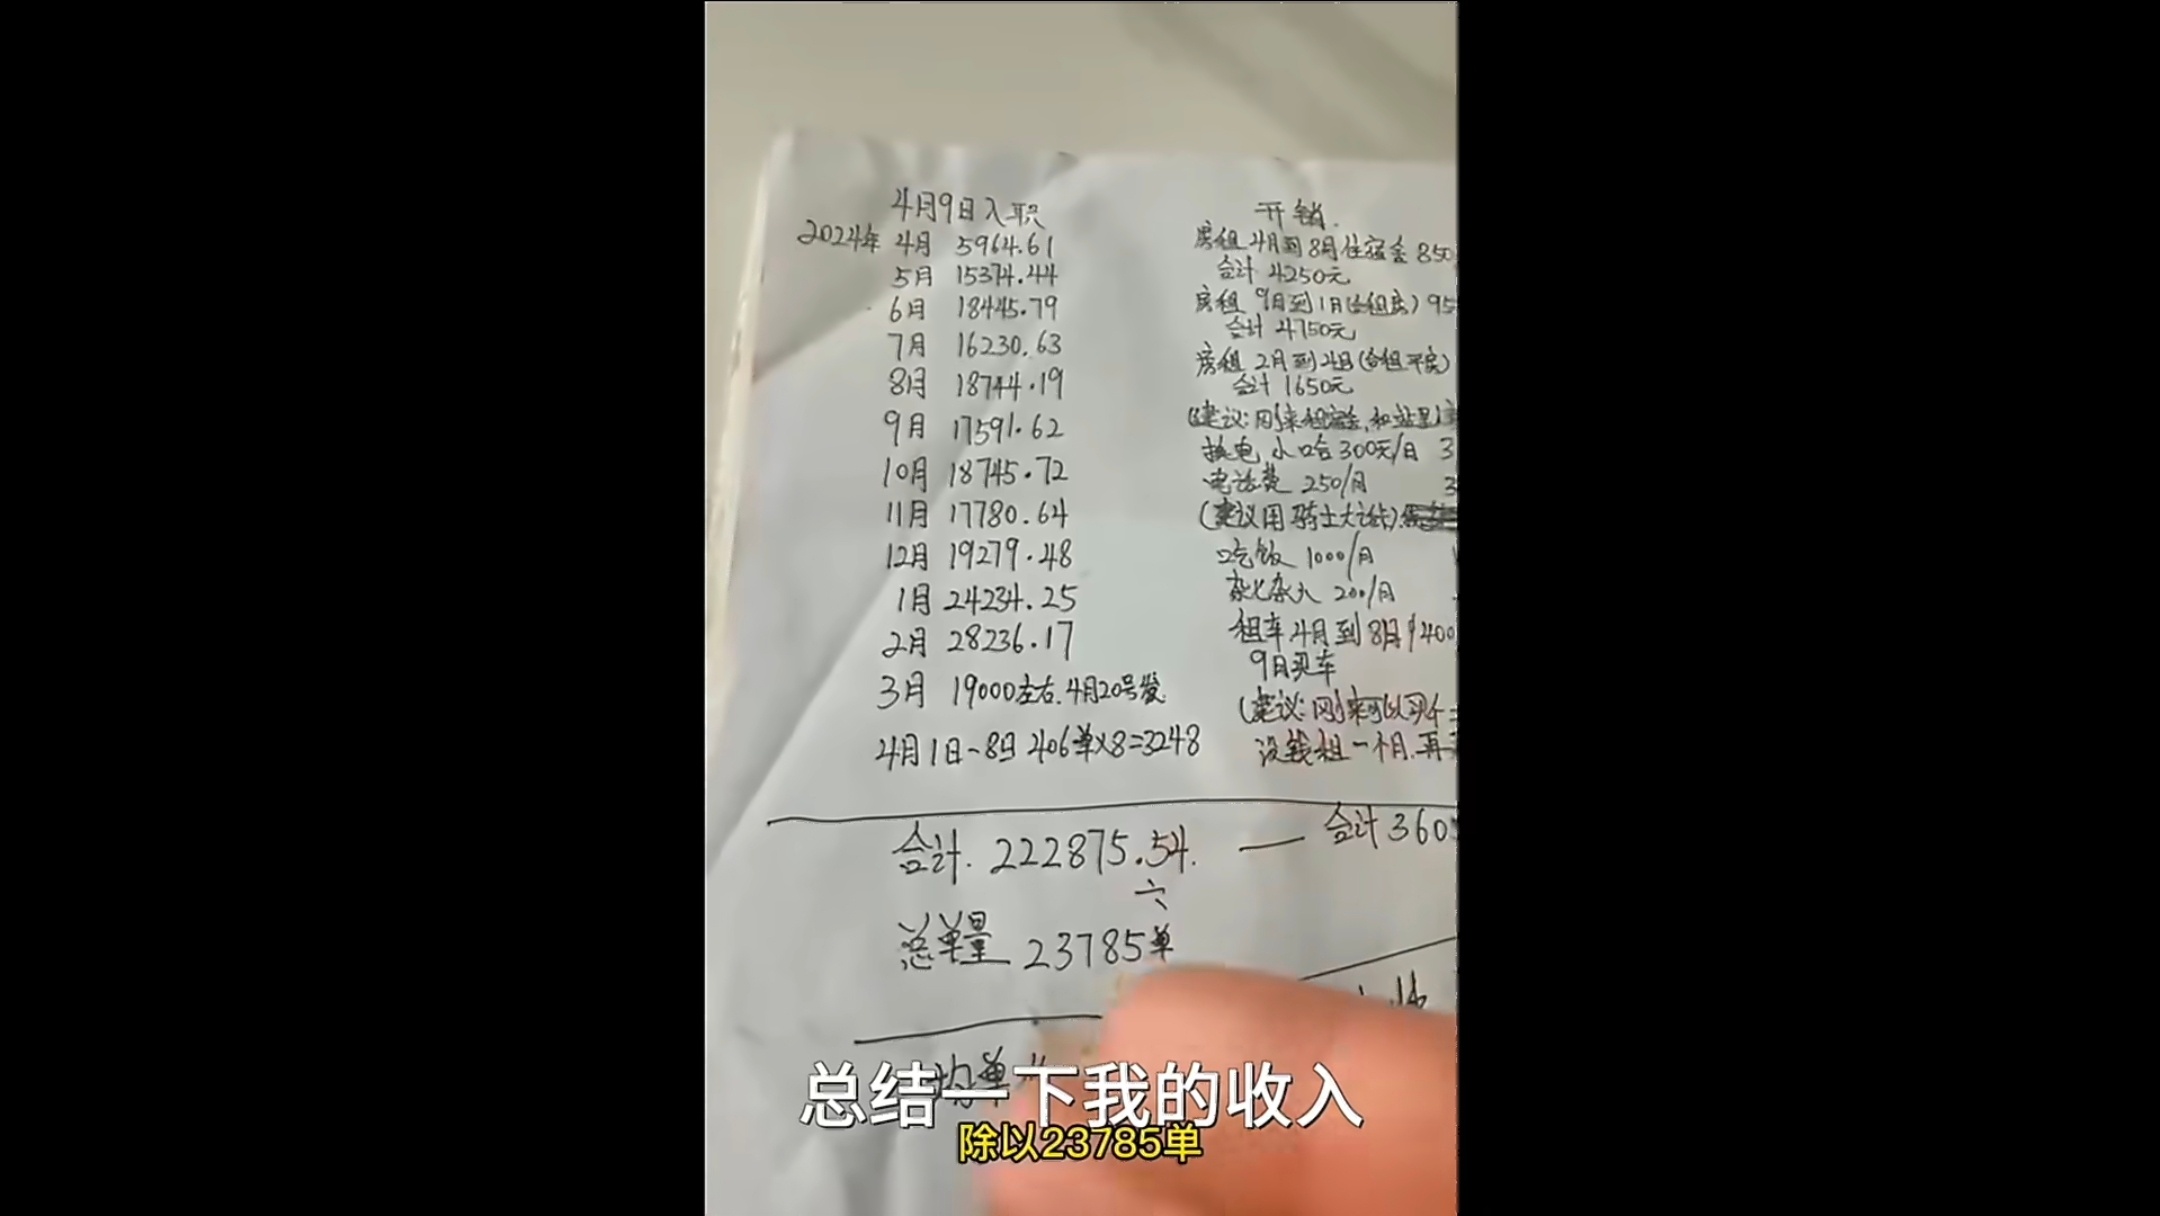 4月9日入职
2024年 4月 5964.61
5月 15374.44
6月 18445.79
7月 16230.63
8月 18744.19
9月 17591.62
10月 18745.72
11月 17780.64
12月 19279.48
1月 24234.25
2月 28236.17
3月 19000左右.4月20号发
4月1日-8日 406单×8=3248
合计. 222875.54.
六
总单量 23785单
均单
开销.
房租 4月到8月住宿舍 850
合计 4250元
房租 9月到1月(合租房) 95
合计 4750元
房租 2月到4月(合租平房)
合计 1650元
(建议:刚来租宿舍,和站里
换电 小哈300元/月 3
电话费 250/月 3
(建议用骑士大
吃饭 1000/月
杂七杂八 200/月
租车4月到8月 400
9月买车
(建议:刚来可以买个
没钱租一个月.再
— 合计 360
总结一下我的收入
除以23785单